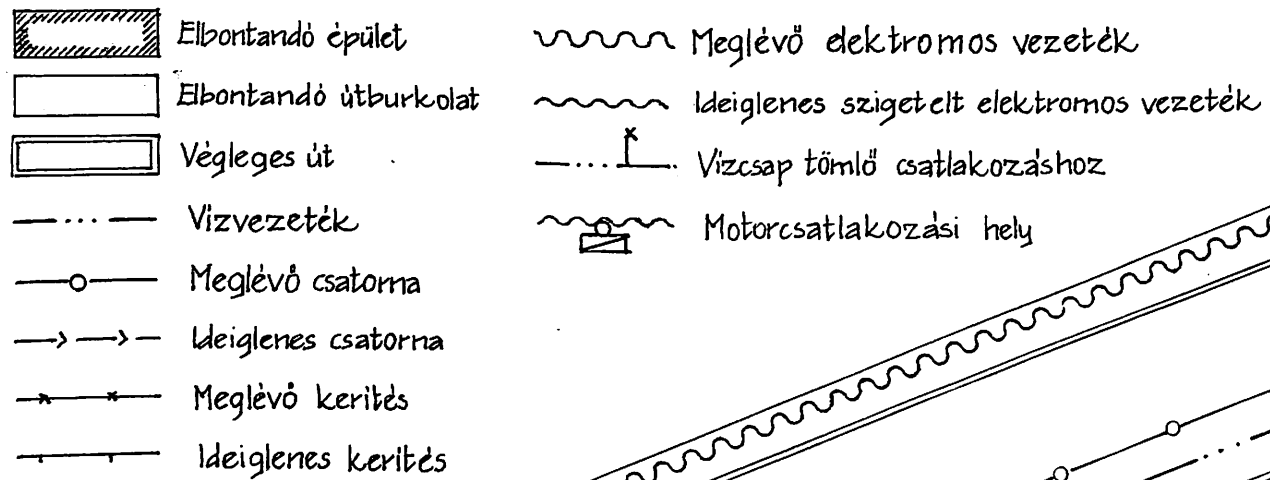 Elbontandó épület
Elbontandó útburkolat
Végleges út
Vízvezeték
Meglévő csatorna
Ideiglenes csatorna
Meglévő kerítés
Ideiglenes kerítés
Meglévő elektromos vezeték
Ideiglenes szigetelt elektromos vezeték
Vízcsap tömlő csatlakozáshoz
Motorcsatlakozási hely